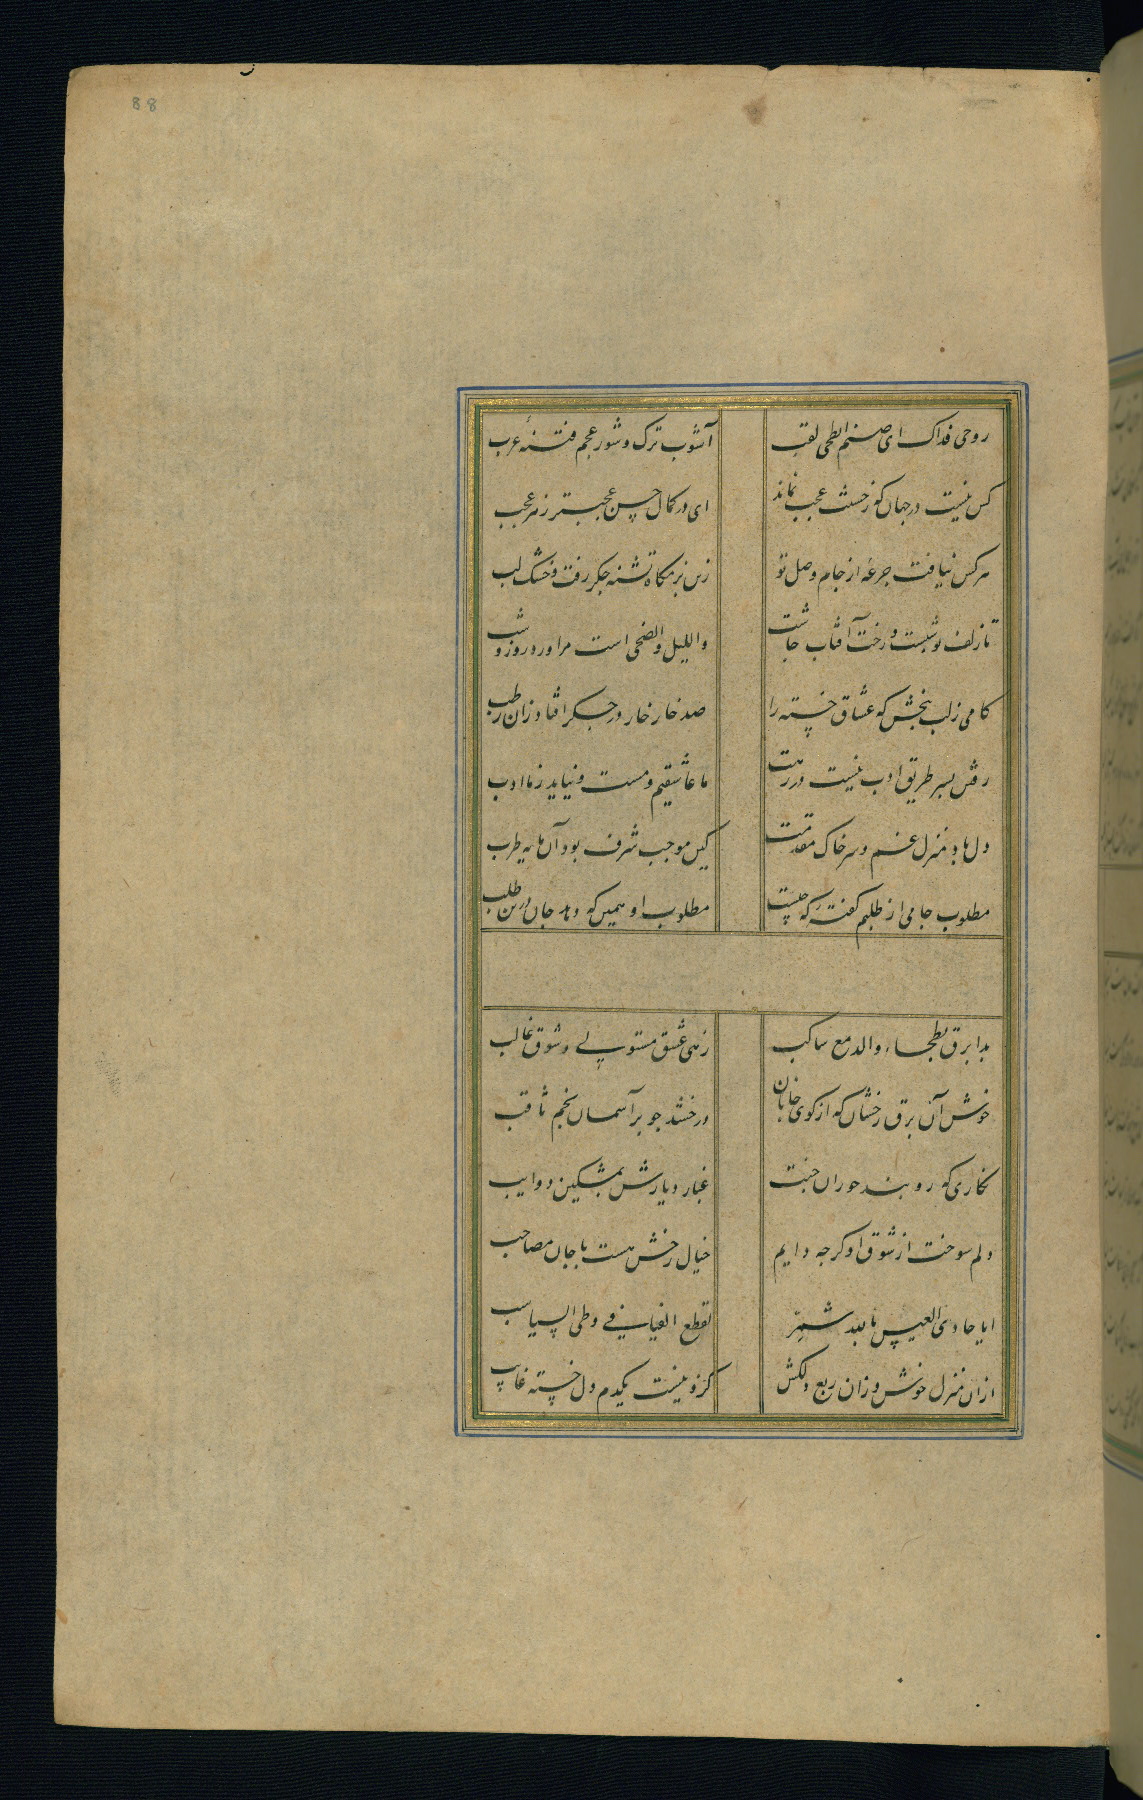 88
روحی فداک ای صنم ابطحی لقب
آشوب ترک و شور عجم فتنهٔ عرب
کس نیست در جهان کز حسنت عجب نماند
ای در کمال حسن عجبتر ز هر عجب
هر کس نیافت جرعهٔ از جام وصل تو
زین بزمگاه تشنه جگر رفت و خشک لب
تا زلف تو شبست و رخت آفتاب چاشت
واللیل والضحی است مرا ورد روز و شب
کامی ز لب ببخش که عشاق خسته را
صد خار خار در جگر افتاد زان رطب
رفتن بسر طریق ادب نیست در رهت
ما عاشقیم و مست و نیاید ز ما ادب
دل باد منزل غم و سر خاک مقدمت
کین موجب شرف بود آن مایه طرب
مطلوب جامی از طلبم گفته که چیست
مطلوب او همین که دهد جان درین طلب
بدا برق بطحاء والدمع ساکب
زهی عشق مستولی و شوق غالب
خوش آن برق رخشان که از کوی جانان
درخشد چو بر آسمان نجم ثاقب
نگاری که روبند حوران جنت
غبار دیارش بمشکین ذوایب
دلم سوخت از شوق او گرچه دایم
خیال رخش هست با جان مصاحب
ایا حادی العیس بالله شمر
لقطع الفیافی وطی السباسب
ازان منزل خوش وزان ربع دلکش
کزو نیست یکدم دل خسته غایب